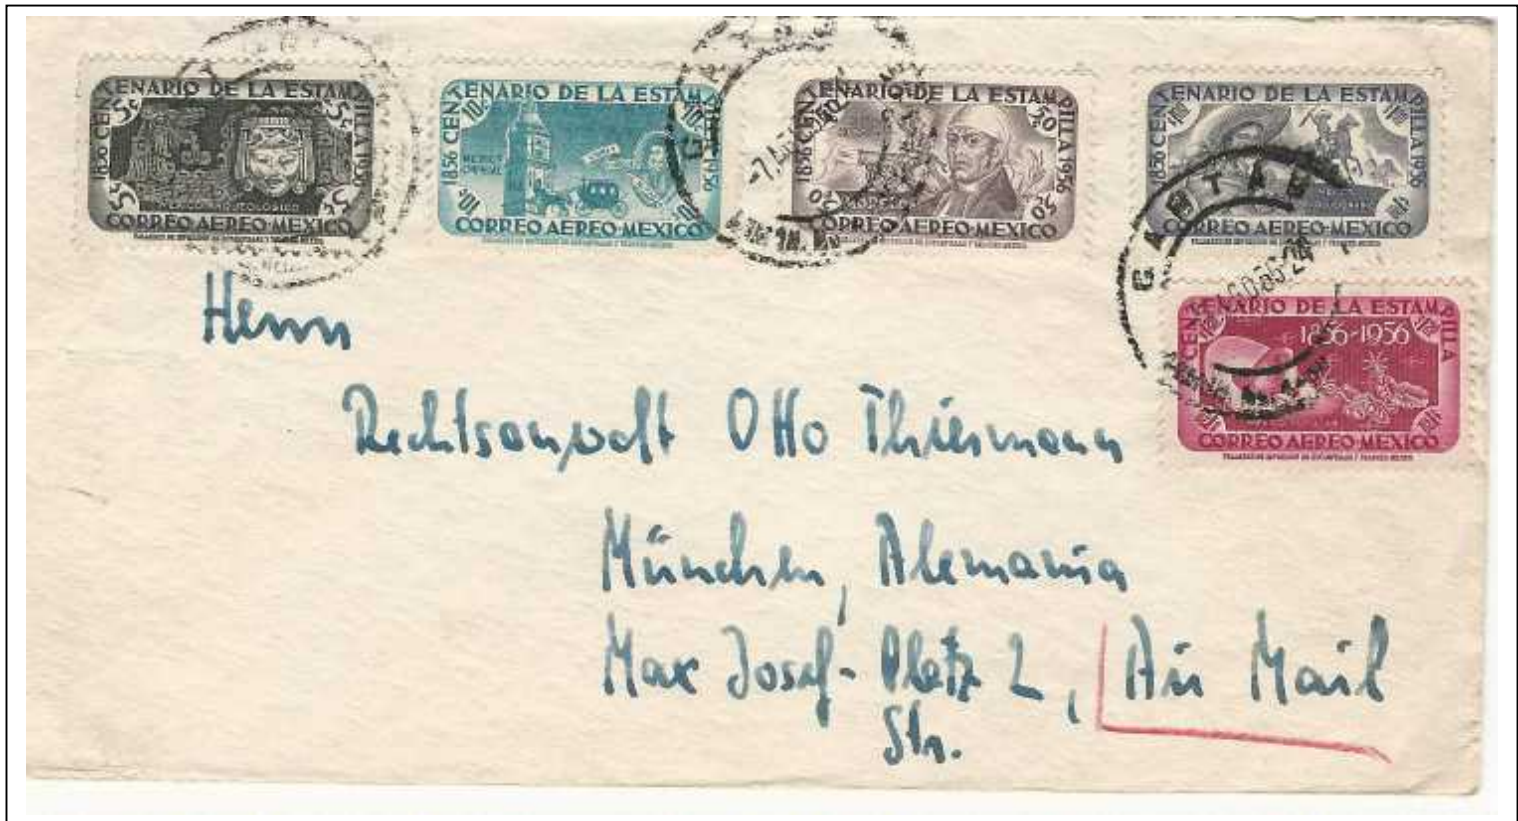 1856 CENTENARIO DE LA ESTAMPILLA 1956
5c 5c
5c 5c
CORREO AEREO-MEXICO
1856 CENTENARIO DE LA ESTAMPILLA 1956
10c 10c
MEXICO
10c 10c
CORREO AEREO-MEXICO
1856 CENTENARIO DE LA ESTAMPILLA 1956
50
50
CORREO AEREO-MEXICO
1856 CENTENARIO DE LA ESTAMPILLA 1956
CORREO AEREO-MEXICO
CENTENARIO DE LA ESTAMPILLA
1856-1956
CORREO AEREO-MEXICO
Herrn
Rechtsanwalt Otto
München, Alemania
Max Josef-Platz 2, Air Mail
Str.